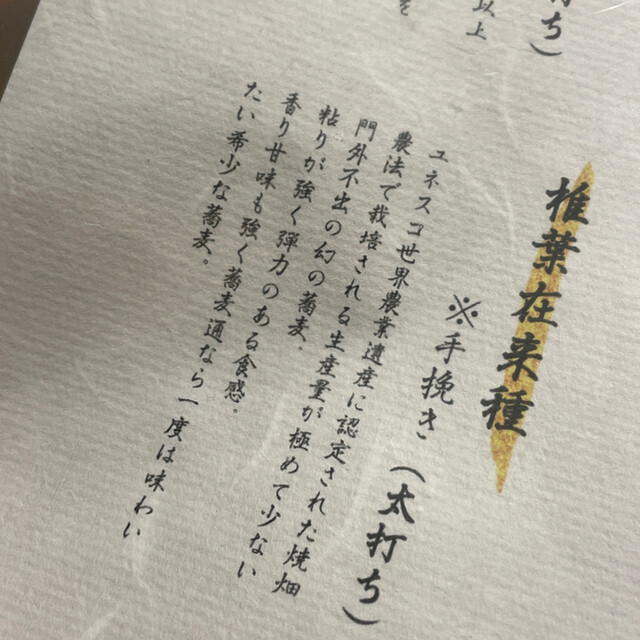 打ち）
以上
を
椎葉在来種
※手挽き（太打ち）
ユネスコ世界農業遺産に認定された焼畑
農法で栽培される生産量が極めて少ない
門外不出の幻の蕎麦。
粘りが強く弾力のある食感。
香り甘味も強く蕎麦通なら一度は味わい
たい希少な蕎麦。